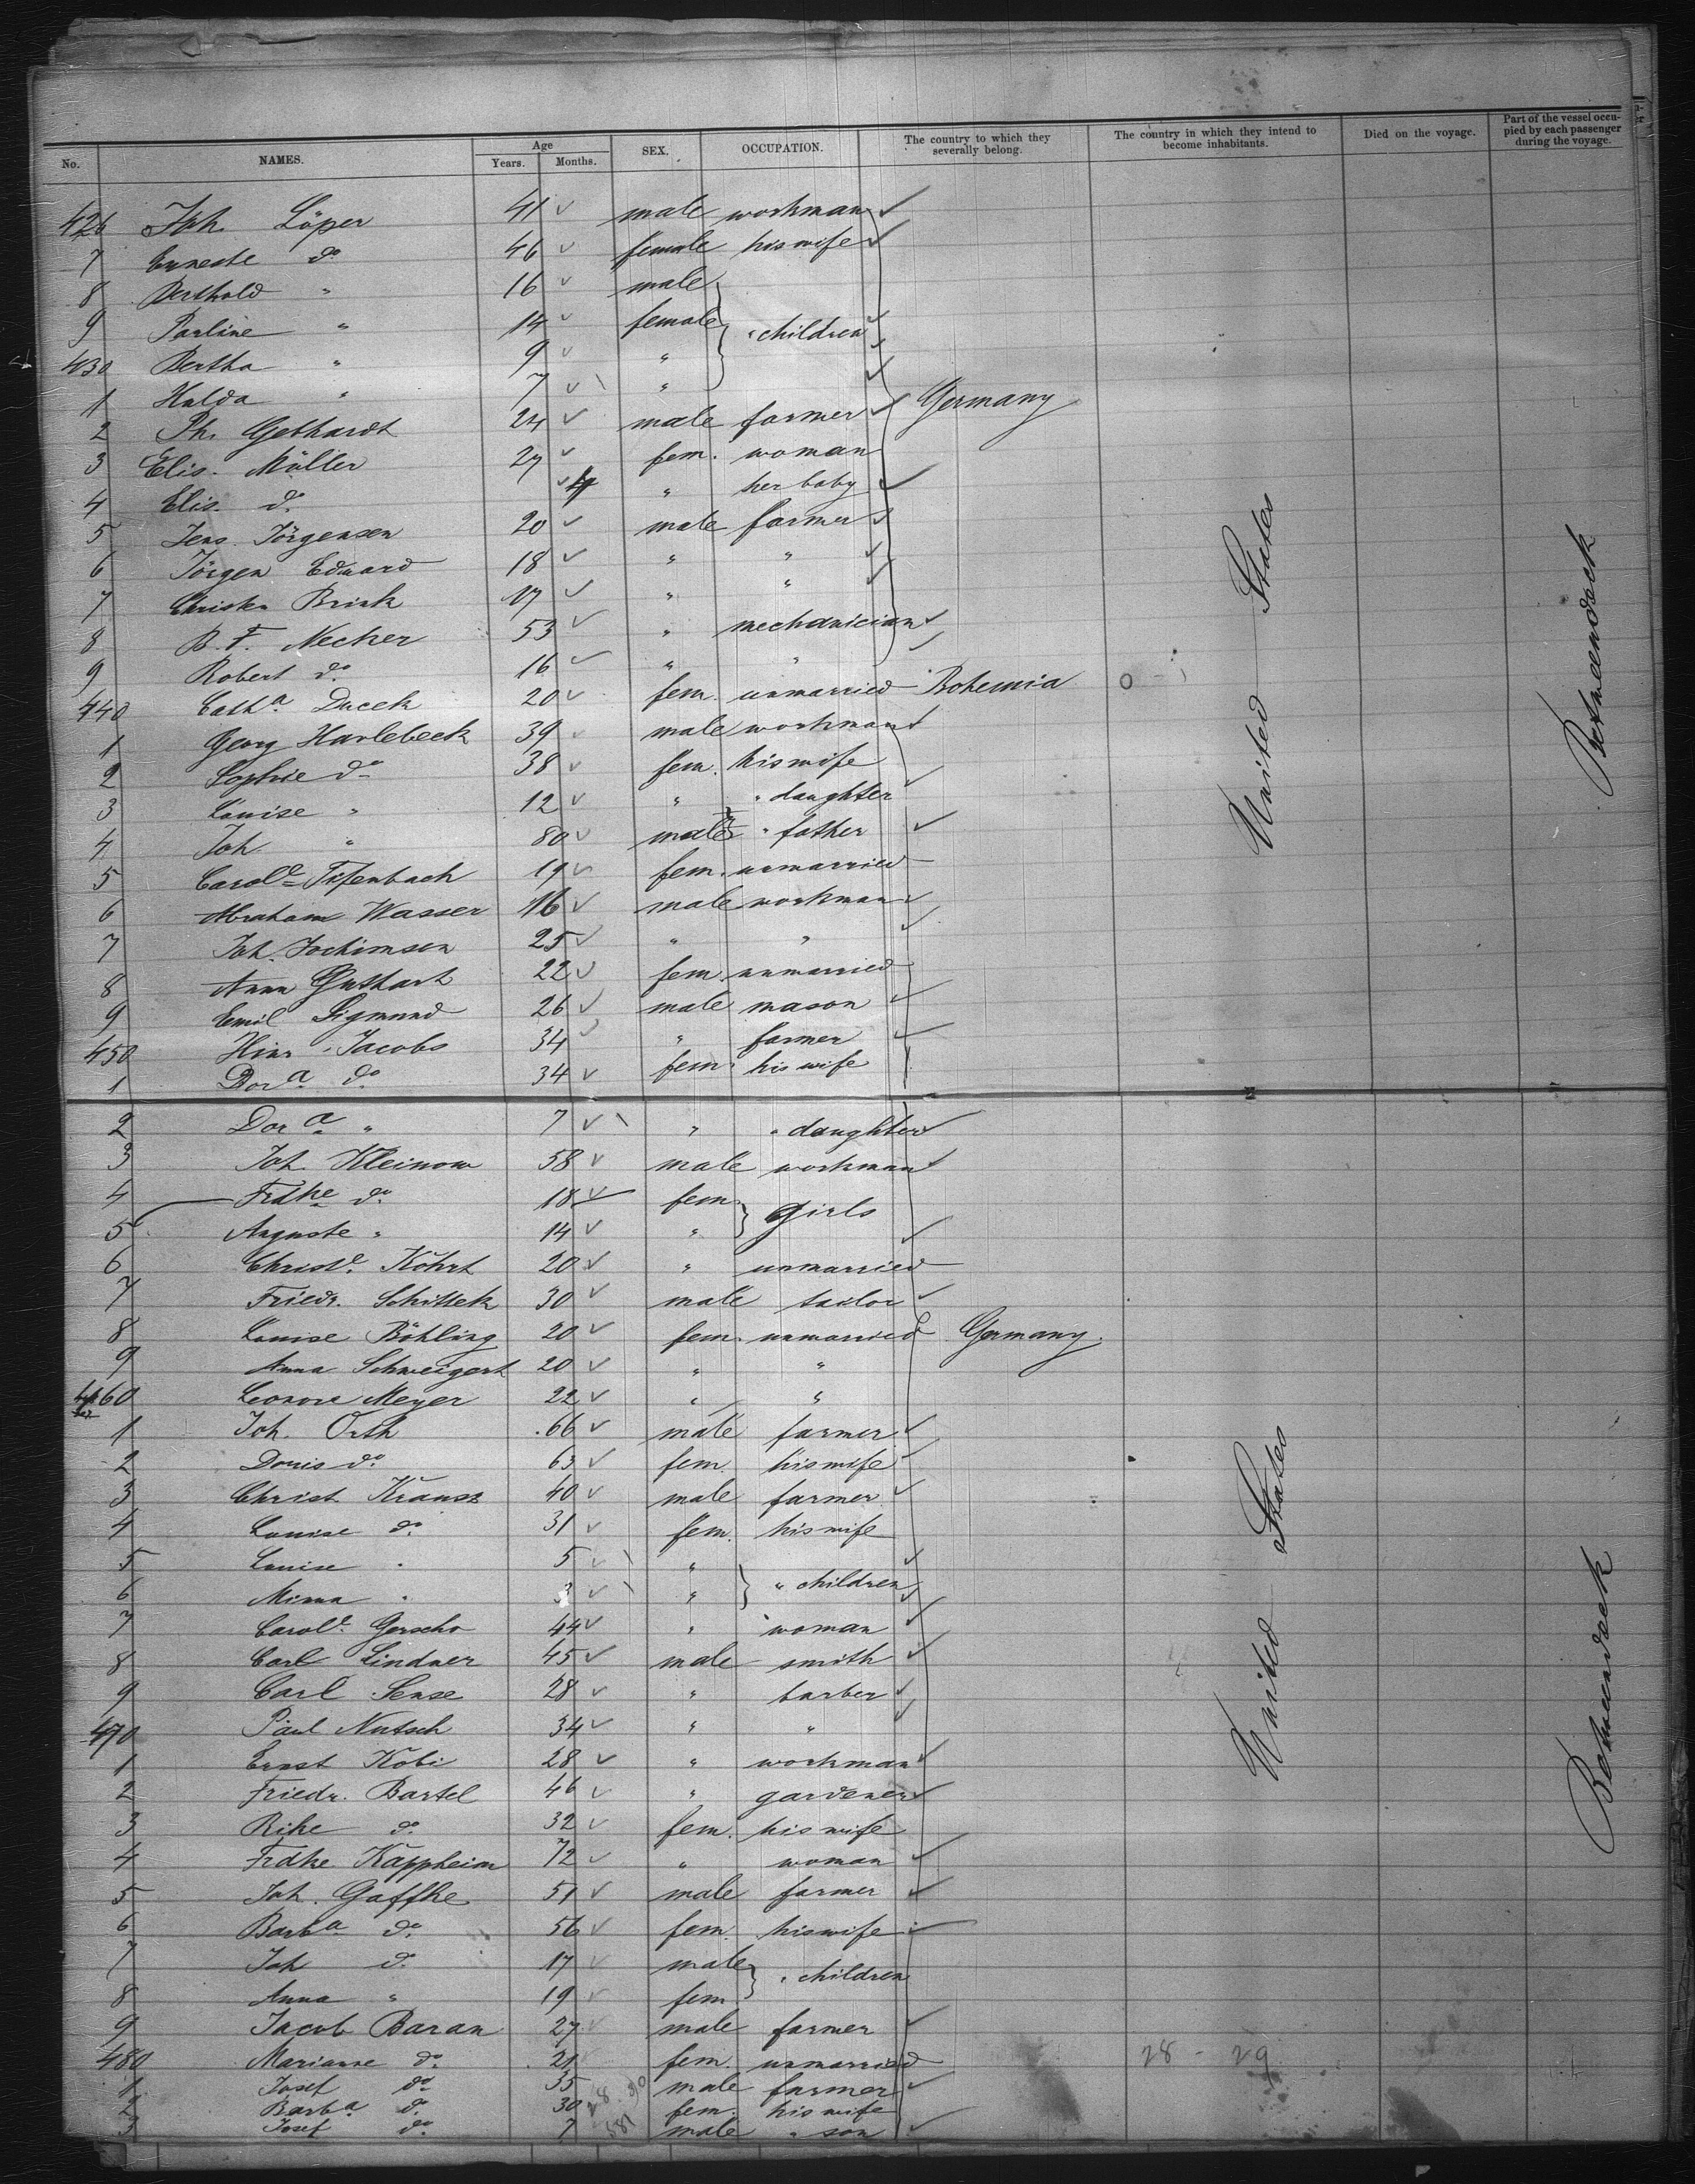 No. NAMES. Age Years. Months. SEX. OCCUPATION. The country to which they severally belong. The country in which they intend to become inhabitants. Died on the voyage. Part of the vessel occupied by each passenger during the voyage.
426 Joh. Löper 41 male workman
7 Erneste do 46 female his wife
8 Berthold " 16 male
9 Pauline " 14 female " children
430 Bertha " 9 "
1 Hulda " 7 "
2 Ph. Gebhardt 24 male farmer Germany
3 Elis. Möller 27 fem. woman
4 Elis. do 4 " her baby
5 Jens Jörgensen 20 male farmer
6 Jörgen Eduard 18 " "
7 Christen Brink 17 " "
8 B. F. Necker 53 " mechanician
9 Robert do 16 " "
440 Catha Ducek 20 fem. unmarried Bohemia
1 Georg Harlebeck 39 male workman
2 Sophie do 38 fem. his wife
3 Louise " 12 " " daughter
4 Joh. " 80 male " father
5 Carole Tiefenbach 19 fem. unmarried
6 Abraham Wasser 16 male workman
7 Joh. Jochimsen 25 " "
8 Anna Guthart 22 fem. unmarried
9 Emil Sigmund 26 male mason
450 Hinr. Jacobs 34 " farmer
1 Dora do 34 fem. his wife
United States
Betweendeck
2 Dora " 7 " " daughter
3 Joh. Kleinow 58 male workman
4 Frdke do 18 fem. girls
5 Auguste " 14 "
6 Christe. Köhrt 20 " unmarried
7 Friedr. Schittek 30 male tailor
8 Louise Böhling 20 fem. unmarried Germany.
9 Anna Schweigert 20 " "
460 Leonore Meyer 22 " "
1 Joh. Orth 66 male farmer
2 Doris do 63 fem. his wife
3 Christ. Krausz 40 male farmer
4 Louise do 31 fem. his wife
5 Louise " 5 "
6 Minna " 3 " " children
7 Carole. Gerscho 44 " woman
8 Carl Lindner 45 male smith
9 Carl Sense 28 " barber
470 Paul Nutsch 34 " "
1 Ernst Köbi 28 " workman
2 Friedr. Bartel 46 " gardener
3 Rike do 32 fem. his wife
4 Frdke Kappheim 72 " woman
5 Joh. Gaffke 51 male farmer
6 Barba do 56 fem. his wife
7 Joh do 17 male " children
8 Anna " 19 fem.
9 Jacob Baran 27 male farmer
480 Marianne do 21 fem. unmarried 28 - 29
1 Josef do 35 male farmer
2 Barba do 30 fem. his wife
3 Josef do 7 male " son
United States
Betweendeck